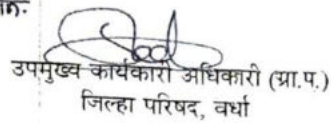 उपमुख्य कार्यकारी अधिकारी (ग्रा.प.)
जिल्हा परिषद, वर्धा